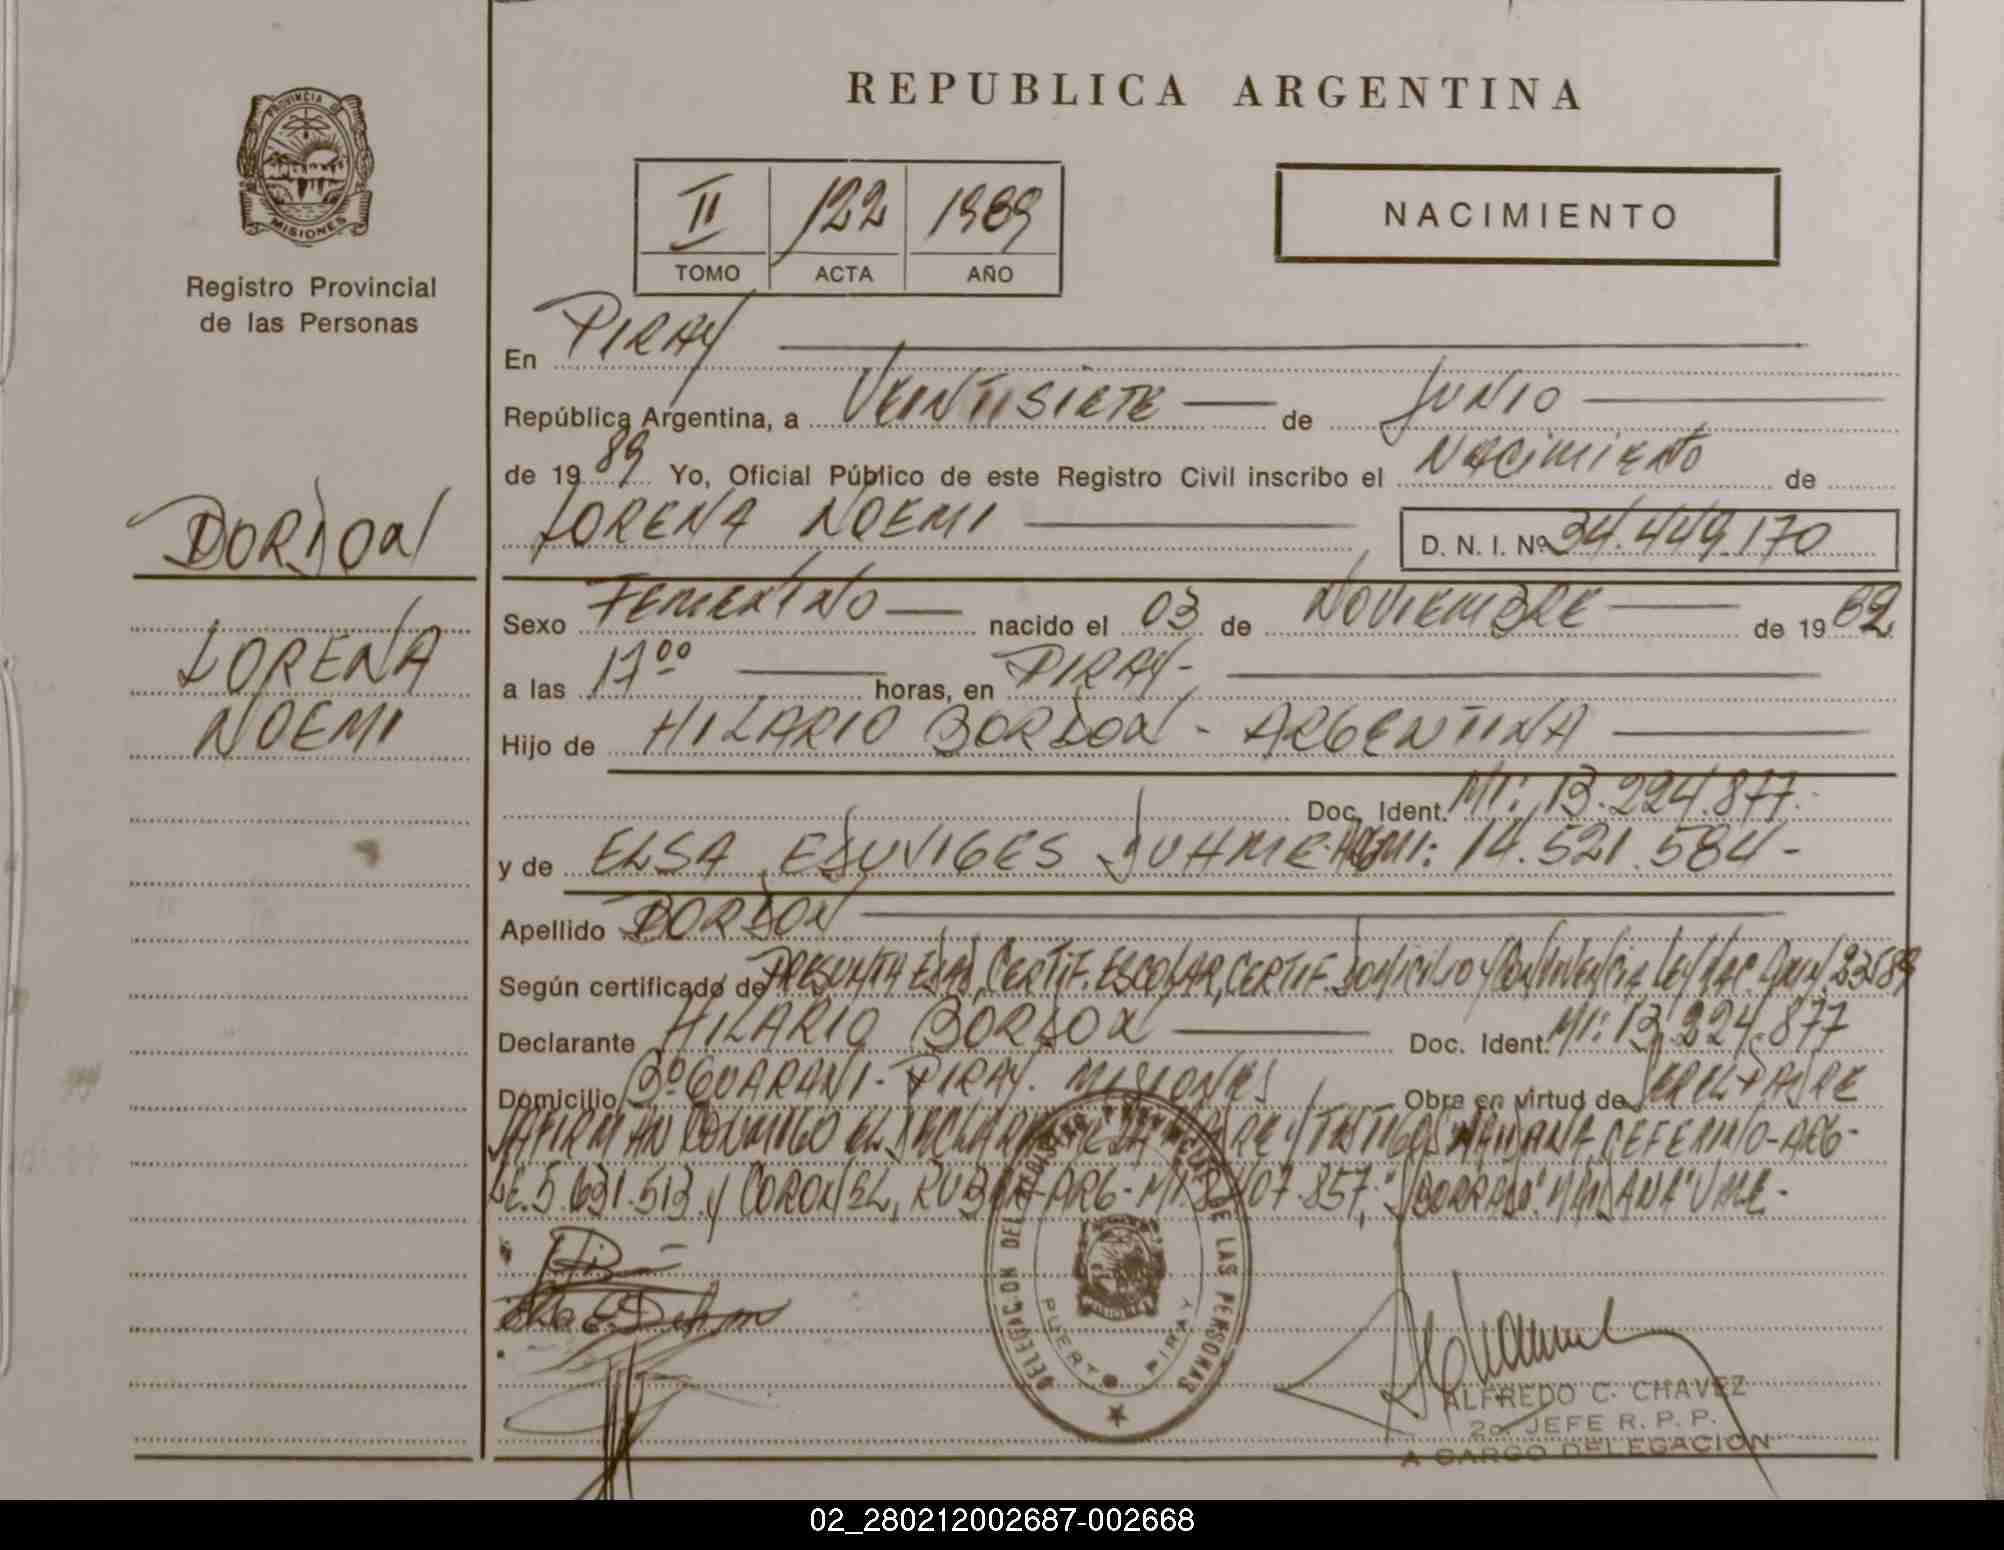 PROVINCIA DE
MISIONES
Registro Provincial
de las Personas
BORDON
LORENA
NOEMI
REPUBLICA ARGENTINA
II 122 1989
TOMO ACTA AÑO
NACIMIENTO
En PIRAY
República Argentina, a VEINTISIETE de JUNIO
de 1989 Yo, Oficial Público de este Registro Civil inscribo el NACIMIENTO de
LORENA NOEMI D. N. I. Nº 34.449.170
Sexo FEMENINO nacido el 03 de NOVIEMBRE de 19
a las 17⁰⁰ horas, en PIRAY-
Hijo de HILARIO BORDON - ARGENTINA
Doc. Ident. MI: 13.224.877.-
y de ELSA EDUVIGES DUHME- MI: 14.521.584-
Apellido BORDON
Según certificado de PRESUNTA EDAD, CERTIF. ESCOLAR, CERTIF. DOMICILIO Y CONVIVENCIA LEY NAC. 
Declarante HILARIO BORDON Doc. Ident. MI: 13.224.877
Domicilio Bº GUARANI - PIRAY. MISIONES Obra en virtud de SER EL PADRE
FIRMAN CONMIGO EL DECLARANTE, LA MADRE Y TESTIGOS MAIDANA CEFERINO-ARG-
LE.5.631.513 y CORONEL, RUBEN-ARG- MI. 107.857; BORRADO: MAIDANA VALE-
DELEGACION DEL REGISTRO PROVINCIAL DE LAS PERSONAS
MISIONES
PUERTO PIRAY
ALFREDO C. CHAVEZ
2do JEFE R. P. P.
A CARGO DELEGACION
02_280212002687-002668